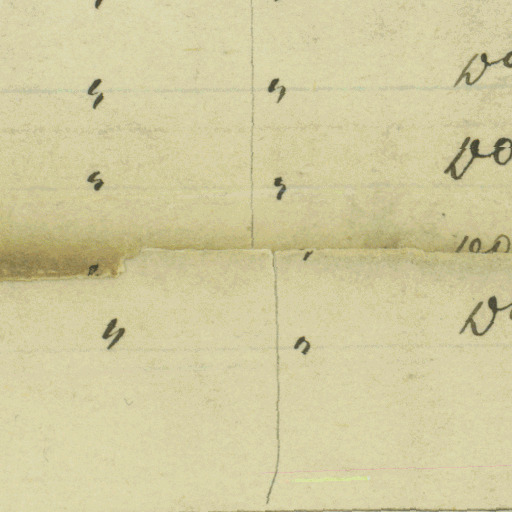 " " Do
" " Do
" " Do
" " Do